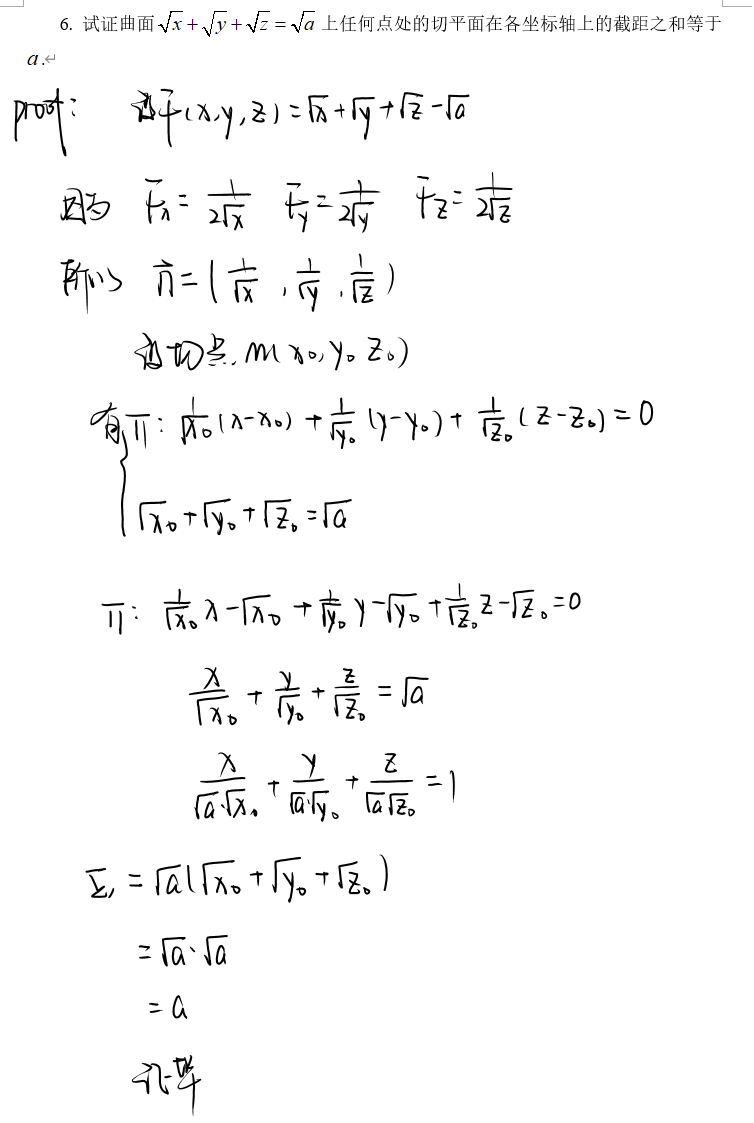 6. 试证曲面 √x + √y + √z = √a 上任何点处的切平面在各坐标轴上的截距之和等于
a.
proof: 设F(x,y,z)=√x+√y+√z-√a
因为 Fx= 1/(2√x) Fy= 1/(2√y) Fz= 1/(2√z)
所以 n⃗=(1/√x , 1/√y , 1/√z)
设切点 M x₀,y₀ z₀)
有 π: 1/√x₀ (x-x₀) + 1/√y₀ (y-y₀) + 1/√z₀ (z-z₀)=0
√x₀+√y₀+√z₀=√a
π: 1/√x₀ x-√x₀ + 1/√y₀ y-√y₀ + 1/√z₀ z-√z₀=0
x/√x₀ + y/√y₀ + z/√z₀ = √a
x/(√a·√x₀) + y/(√a·√y₀) + z/(√a√z₀) = 1
Σ = √a(√x₀+√y₀+√z₀)
= √a·√a
= a
证毕